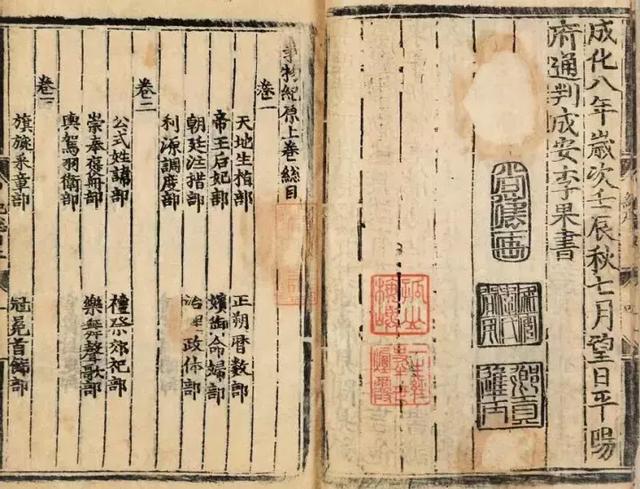 成化八年歲次壬辰秋七月望日平陽
府通判成安李果書
事物紀原上卷總目
卷一
天地生植部 正朔曆數部
帝王后妃部 嬪御命婦部
朝廷注措部 治理政体部
利源調度部
卷二
公式姓諱部 禮祭郊祀部
崇奉褒冊部 樂舞聲歌部
輿駕羽衛部
卷三
旗旐采章部 冠冕首飾部